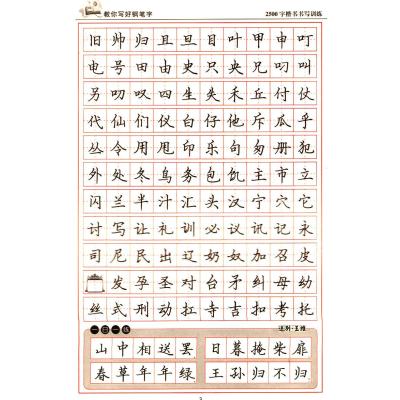 教你写好钢笔字
2500字楷书书写训练
旧帅归且旦目叶甲申叮
电号田由史只央兄叼叫
另叨叹四生失禾丘付仗
代仙们仪白仔他斥瓜乎
丛令用甩印乐句匆册犯
外处冬鸟务包饥主市立
闪兰半汁汇头汉宁穴它
讨写让礼训必议讯记永
司尼民出辽奶奴加召皮
发孕圣对台矛纠母幼
丝式刑动扛寺吉扣考托
一日一练
送别·王维
山中相送罢
日暮掩柴扉
春草年年绿
王孙归不归
3